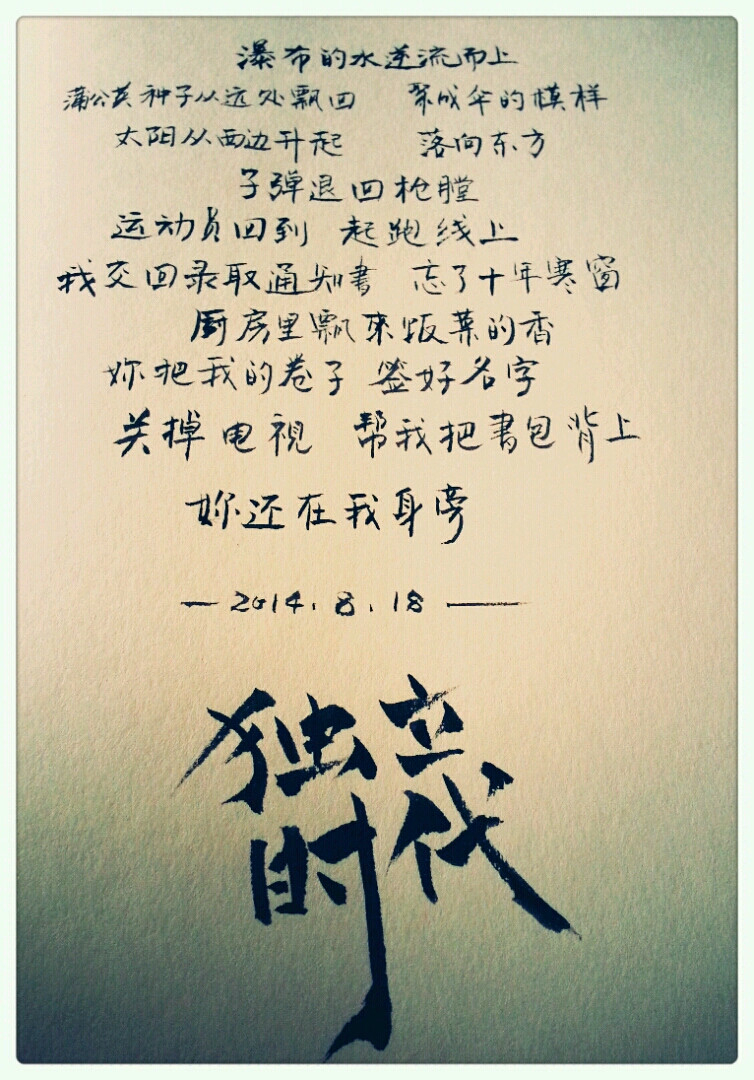 瀑布的水逆流而上
蒲公英种子从远处飘回 聚成伞的模样
太阳从西边升起 落向东方
子弹退回枪膛
运动员回到 起跑线上
我交回录取通知書 忘了十年寒窗
厨房里飘來饭菜的香
妳把我的卷子 签好名字
关掉电視 帮我把書包背上
妳还在我身旁
—2014.8.18—
独立
时代